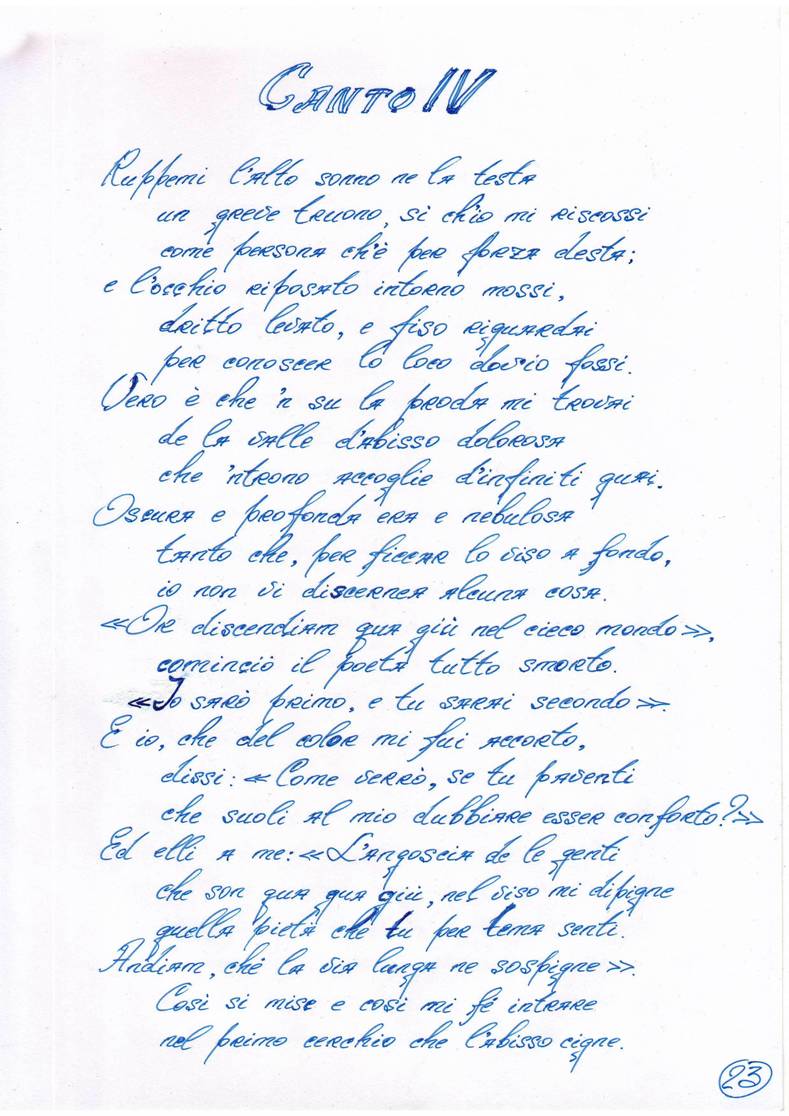 CANTO IV
Ruppemi l'alto sonno ne la testa
un greve truono, sì ch'io mi riscossi
come persona ch'è per forza desta;
e l'occhio riposato intorno mossi,
dritto levato, e fiso riguardai
per conoscer lo loco dov'io fossi.
Vero è che 'n su la proda mi trovai
de la valle d'abisso dolorosa
che 'ntrono accoglie d'infiniti guai.
Oscura e profonda era e nebulosa
tanto che, per ficcar lo viso a fondo,
io non vi discernea alcuna cosa.
«Or discendiam qua giù nel cieco mondo»,
cominciò il poeta tutto smorto.
«Io sarò primo, e tu sarai secondo».
E io, che del color mi fui accorto,
dissi: «Come verrò, se tu paventi
che suoli al mio dubbiare esser conforto?»
Ed elli a me: «L'angoscia de le genti
che son qua qua giù, nel viso mi dipigne
quella pietà che tu per tema senti.
Andiam, ché la via lunga ne sospigne».
Così si mise e così mi fé intrare
nel primo cerchio che l'abisso cigne.
23